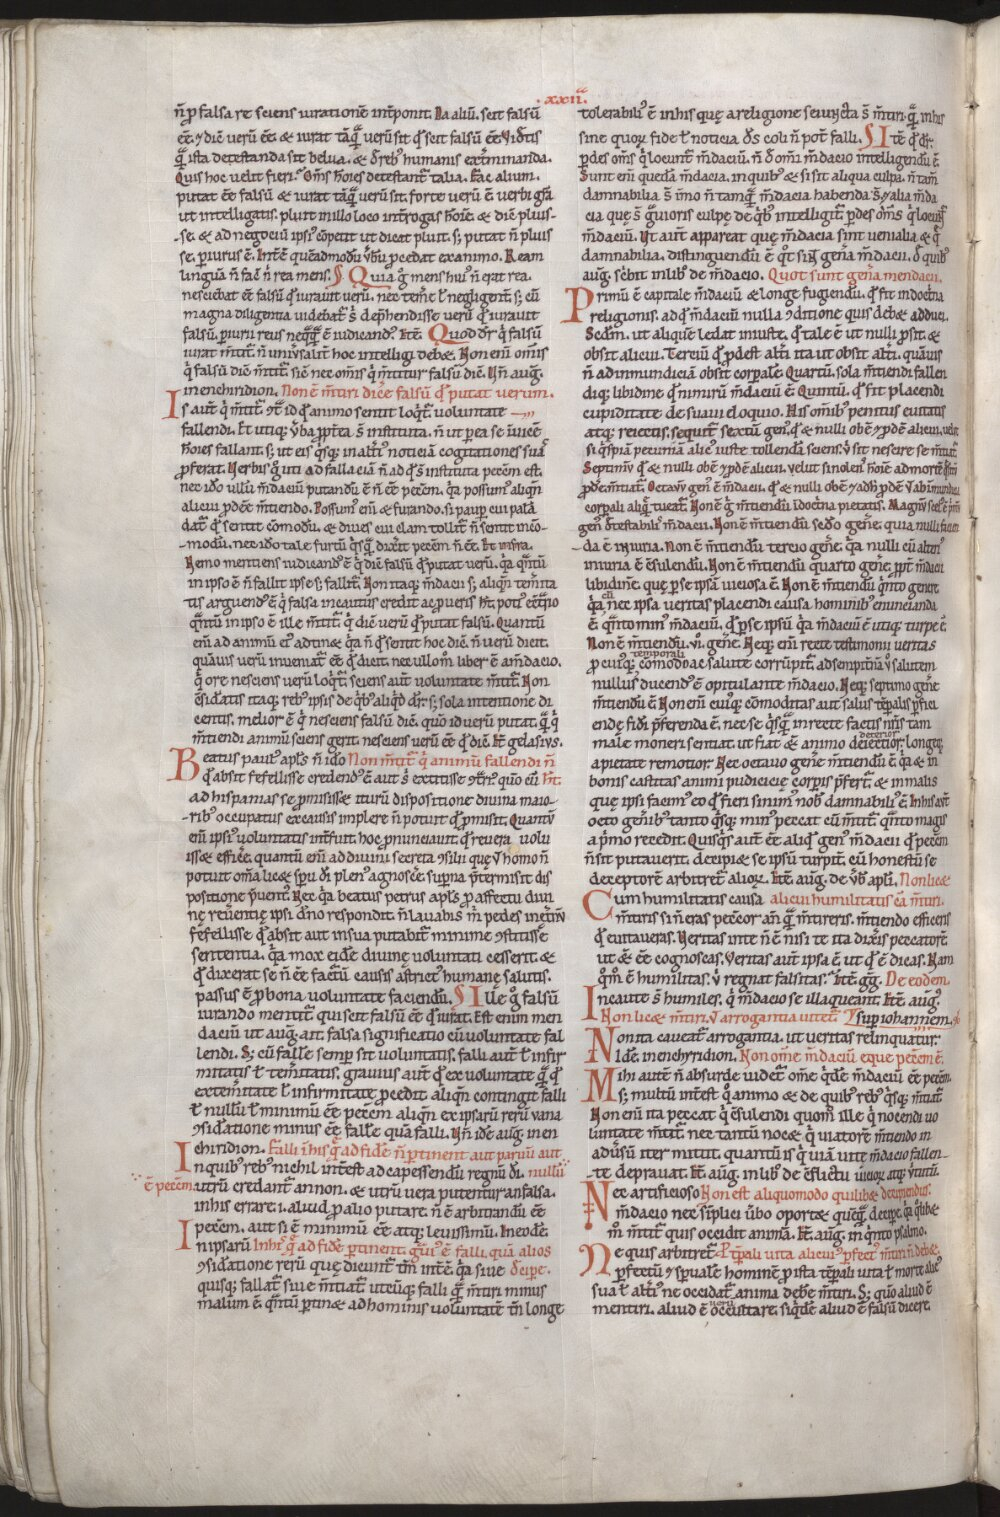 .xxii.
n̄ ꝑ falsa re sciens iurationē int̄ponit. Da aliū. scit falsū
eē. ⁊ diē verū eē. & iurat tāq̄ verū sit qđ scit falsū eē. Vidētis
q̄ ista detestanda sit belua. & đ reb; humanis ext̄minanda.
Quis hoc velit fieri. Om̄s hoīes detestant̄ talia. Fac alium.
putat eē falsū & iurat tāq̄ verū sit. forte verū ē verbi grā
ut intelligatis. pluit in illo loco int̄rogas hoīem & diē pluis-
-se. & ad negociū ipsi cōpetit ut dicat pluit. s; putat n̄ pluis
se. piurus ē. Int̄ē quēadmodū v̄bū ꝓcedat ex animo. Ream
linguā n̄ facit n̄ rea mens. Quia g̊ mens hui' n̄ erat rea.
nesciebat eē falsū qđ iurauit verū. nec tem̄e ł negligent̄. s; cū
magna diligentia uidebat̄ s̄ dep̄hendisse verū qđ iurauit
falsū. piurii reus neq̄q̄ ē iudicand'. Itē. Quod dr̄ q̄ falsū
iurat m̄tit̄. n̄ uniūsalit̄ hoc intelligi debet. Non enī om̄is
q̄ falsū diē m̄tit̄. sic nec om̄is q̄ m̄titur falsū diē. Vn̄ auḡ.
in enchiridion. Non ē m̄tiri dicē falsū qđ putat verum.
Is aut̄ q̄ m̄tit̄. ꝯt̄ id qđ animo sentit loq̄t̄ uoluntate
fallendi. Et utiq; v̄ba ꝓpt̄ea s̄ instituta. n̄ ut per ea se inuicē
hoīes fallant. s; ut eis q̄sq; in alt̄i' noticiā cogitationes suas
ꝓferat. Verbis g̊ uti ad fallaciā n̄ ad qđ s̄ instituta peccm̄ est.
nec ido ullū m̄daciū putandū ē n̄ eē peccm̄. q̄a possum' aliqn̄
alicui ꝓdeē m̄tiendo. Possum' enī & furando. si paup̄ cui palā
dat̄ qđ sentit cōmodū. & diues cui clam tollit̄ n̄ sentit incō-
-modū. nec ido tale furtū q̄sq̄ dixerit peccm̄ n̄ eē. Et infra.
Nemo mentiens iudicand' ē q̄ diē falsū qđ putat verū. q̄a q̄ntū
in ipso ē n̄ fallit ipse s; fallit̄. Non itaq; m̄dacii s; aliqn̄ tem̄ita
tis arguend' ē q̄ falsa incautius credit ac ꝓ ueris h̄t. poti' ecōt̄rio
q̄ntū in ipso ē ille m̄tit̄. q̄ diē verū qđ putat falsū. Quantū
enī ad animū ei' adtinet q̄a n̄ qđ sentit hoc diē. n̄ verū dicit.
quāuis verū inueniat̄ eē qđ dicit. nec ullom̄ liber ē a m̄dacio.
q̄ ore nesciens verū loq̄t̄. sciens aut̄ voluntate m̄tit̄. Non
ꝯsidatis itaq; reb; ipsis de q̄b; aliqđ dr̄. s; sola intentione di
centis. melior ē q̄ nesciens falsū diē. quō id verū putat. q̄ q̄
m̄tiendi animū sciens gerit. nesciens verū eē qđ diē. Itē gelasius.
Beatus paul' apl̄s n̄ ido Non m̄tit̄ q̄ animū fallendi n̄
qđ absit fefellisse credend' ē aut s̄ extitisse ꝯt̄ri'. quō cū h̄t.
ad hispanias se ꝓmisisset iturū dispositione diuina maio-
-rib; occupatus ex causis implere n̄ potuit qđ ꝓmisit. Quantū
enī ipsi' uoluntatis int̄fuit. hoc ꝓnunciauit. qđ reuera uolu
isset efficē. quantū enī ad diuini secreta ꝯsilii que ut homo n̄
potuit om̄ia licet sp̄u di plen' agnoscē. sup̄na p̄termisit dis
positione p̄uent'. Nec q̄a beatus petrus apl̄s ꝓ affectu diui
nę reūentię ipsi dn̄o respondit. n̄ lauabis m̄ pedes inęt̄nū
fefellisse qđ absit aut in sua putabit̄ minime ꝯstitisse
sententia. q̄a mox eidē diuinę voluntati cesserit. &
qđ dixerat se n̄ eē factū causis astrict' humanę salutis.
passus ē ꝓ bona voluntate faciendū. Ille g̊ falsū
iurando mentit̄. qui scit falsū eē qđ iurat. Est enim men
daciū ut auḡ. ait. falsa significatio cū uoluntate fal
lendi. S; cū fallē semp̄ sit voluntatis. falli aut̄ ł infir
mitatis ł tem̄itatis. grauius aut̄ qđ ex voluntate q̄ qđ
ex tem̄itate ł infirmitate ꝓcedit. aliqn̄ contingit falli
ł nullū ł minimū eē peccm̄ aliqn̄ ex ipsarū rerū uana
ꝯsidatione minus eē fallē quā falli. Vn̄ idē auḡ. in en
chiridion. Falli in his q̄ ad fidē n̄ ptinent aut paruū aut
In quib; reb; nichil int̄est ad capessendū regnū di. nullū
ē peccm̄. utrū credant̄ an non. & utrū uera putentur an falsa.
in his errare. i. aliud ꝓ alio putare. n̄ ē arbitrandū eē
peccm̄. aut si ē minimū eē atq; leuissimū. In eodē.
In ipsarū In his q̄ ad fidē ptinent. graui' ē falli. quā alios
ꝯsidatione rerū quę dicunt̄ tm̄ int̄ē. q̄a siue decipe.
quisq; fallat̄ siue m̄tiat̄. uterūq; falli q̄ m̄tiri minus
malum ē. q̄ntū ptinet ad hominis uoluntatē. tn̄ longe
tolerabili' ē in his quę a religione seiuncta s̄ m̄tiri. q̄ in his
sine quoꝝ fide ł noticia ds̄ coli n̄ pot̄ falli. Itē qđ dr̄.
ꝑdes om̄s q̄ locunt̄ m̄daciū. n̄ đ om̄i m̄dacio intelligendū ē.
Sunt enī quedā m̄dacia. in quib; & si sit aliqua culpa. n̄ tam̄
damnabilia s̄. imo n̄ tamq̄ m̄dacia habenda s̄. ⁊ alia m̄da
cia que s̄ g̊uioris culpę de q̄b; intelligit̄ ꝑdes om̄s q̄ locunt̄
m̄daciū. Ut aut̄ appareat quę m̄dacia sint uenialia & q̄
damnabilia. distinguendū ē qt̄ sint gen̄a m̄dacii. đ quib;
auḡ. scbit in lib' de m̄dacio. Quot sunt gen̄a mendacii.
Primū ē capitale m̄daciū & longe fugiendū. qđ fit in doct̄na
religionis. ad qđ m̄daciū nulla ꝯditione quis debet adduci.
Scdm̄. ut aliquē ledat iniuste. qđ tale ē ut nulli ꝓsit. &
obsit alicui. Terciū qđ ꝓdest alt̄i. ita ut obsit alt̄i. quāuis
n̄ ad inmundiciā obsit corꝑale. Quartū. sola m̄tiendi fallen
diq; libidine. qđ nimirū m̄daciū ē. Quintū. qđ fit placendi
cupiditate de suaui eloquio. His om̄ib; penitus euitatis
atq; reiectis. sequit̄ sextū gen'. qđ & nulli obē ⁊ ꝓdē alicui. velut
si q̄spiā pecuniā alic' iuste tollendā sciens. ubi sit nescire se m̄tiat̄.
Septimū qđ & nulli obē ⁊ ꝓdē alicui. velut si nolens hoīē ad mortē q̄sitū
ꝓdē m̄tiat̄. Octauū gen' ē m̄dacii. qđ & nulli obē ⁊ ad h̄ ꝓdē ut ab inmundicia
corꝑali aliq̄ tueat̄. Non ē g̊ m̄tiendū ī doct̄na pietatis. Magnū scel' ē ⁊ p̄mū
gen' detestabilis m̄dacii. Non ē m̄tiendū scdo gen̄e. quia nulli facien
da ē iniuria. Non ē m̄tiendū tercio gen̄e. q̄a nulli cū alteri'
iniuria ē ꝯsulendū. Non ē m̄tiendū quarto gen̄e. ꝓpt̄ m̄dacii
libidinē. que ꝑ se ipsā uiciosa ē. Non ē m̄tiendū q̄nto genere
q̄a nec ipsa veritas placendi causa hominib; enuncianda
ē. q̄nto min' m̄daciū. qđ ꝑ se ipsū q̄a m̄daciū ē utiq; turpe ē.
Non ē m̄tiendū .vi. gen̄e. Neq; enī recte testimonii ueritas
ꝓ cuiq; temporali cōmodo ac salute corrūpit̄. ad sempit̄nā v̄ salutem
nullus ducend' ē opitulante m̄dacio. Neq; septimo gen̄e
m̄tiendū ē. Non enī cuiq; cōmoditas aut salus tēꝑalis ꝑfici
endę fidi p̄ferenda ē. nec se q̄sq̄ in recte factis nr̄is tam
male moneri sentiat. ut fiat & animo deterior. longeq;
a pietate remotior. Nec octauo gen̄e m̄tiendū ē. q̄a & in
bonis castitas animi pudicicię corpis p̄fert̄. & in malis
quę ipsi facim' eo qđ fieri sinim' nob' damnabili' ē. In his aut̄
octo gen̄ib; tanto q̄sq; min' peccat cū m̄tit̄. q̄nto magis
a p̄mo recedit. Quisq̄s aut̄ eē aliqđ gen' m̄dacii qđ peccm̄
n̄ sit putauerit. decipiet se ipsū turpit̄. cū honestū se
deceptorē arbitret̄ alioꝝ. Itē auḡ. de v̄b' apl̄i. Non licet
Cum humilitatis causa alicui humilitatis cā m̄tiri.
m̄tiris si n̄ eras peccor an̄ q̄ m̄tireris. m̄tiendo efficeris
qđ euitaueras. Veritas in te n̄ ē nisi te ita dixeris peccatorē
ut & eē cognoscas. Veritas aut̄ ipsa ē ut qđ ē dicas. Nam
qm̄ ē humilitas. v̄ regnat falsitas. Itē. gḡ. De eodem.
Incaute s̄ humiles. q̄ m̄dacio se illaqueant. Itē auḡ.
Non licet m̄tiri. ut arrogantia uitet̄. super iohannem.
Non ita caueat̄ arrogantia. ut veritas relinquatur.
Idē. in enchridion. Non om̄e m̄daciū eque peccm̄ ē.
Mihi autē n̄ absurde uidet̄ om̄e q̄dē m̄daciū eē peccm̄.
s; multū int̄est q̄ animo & de quib; reb; q̄sq; m̄tiat̄.
Non enī ita peccat q̄ ꝯsulendi quom̄ ille q̄ nocendi uo
luntate m̄tit̄. nec tantū nocet q̄ uiatorē m̄tiendo in
adūsū iter mittit. quantū is q̄ uiā uitę m̄dacio fallen-
-te deprauat. Itē. auḡ. in lib' de ꝯflictu uicioꝝ atq; v̄tutū.
Nec artificioso Non est aliquomodo quilibet decipiendus.
m̄dacio nec simplici ūbo oportet quēq̄ decipē. q̄a q̄libet
m̄ m̄tit̄ quis occidit animā. Itē. auḡ. in q̄nto psalmo.
Ne quis arbitret̄ Ꝓ tp̄ali uita alicui' ꝑfect' m̄tiri n̄ debet.
ꝑfectū ⁊ sp̄ualē hominē ꝓ ista tēꝑali uita ł morte alic'
sua ł alt̄i' ne occidat̄ anima debē m̄tiri. S; quō aliud ē
mentiri. aliud ē ueru occultare. siqđē aliud ē falsū dicere.